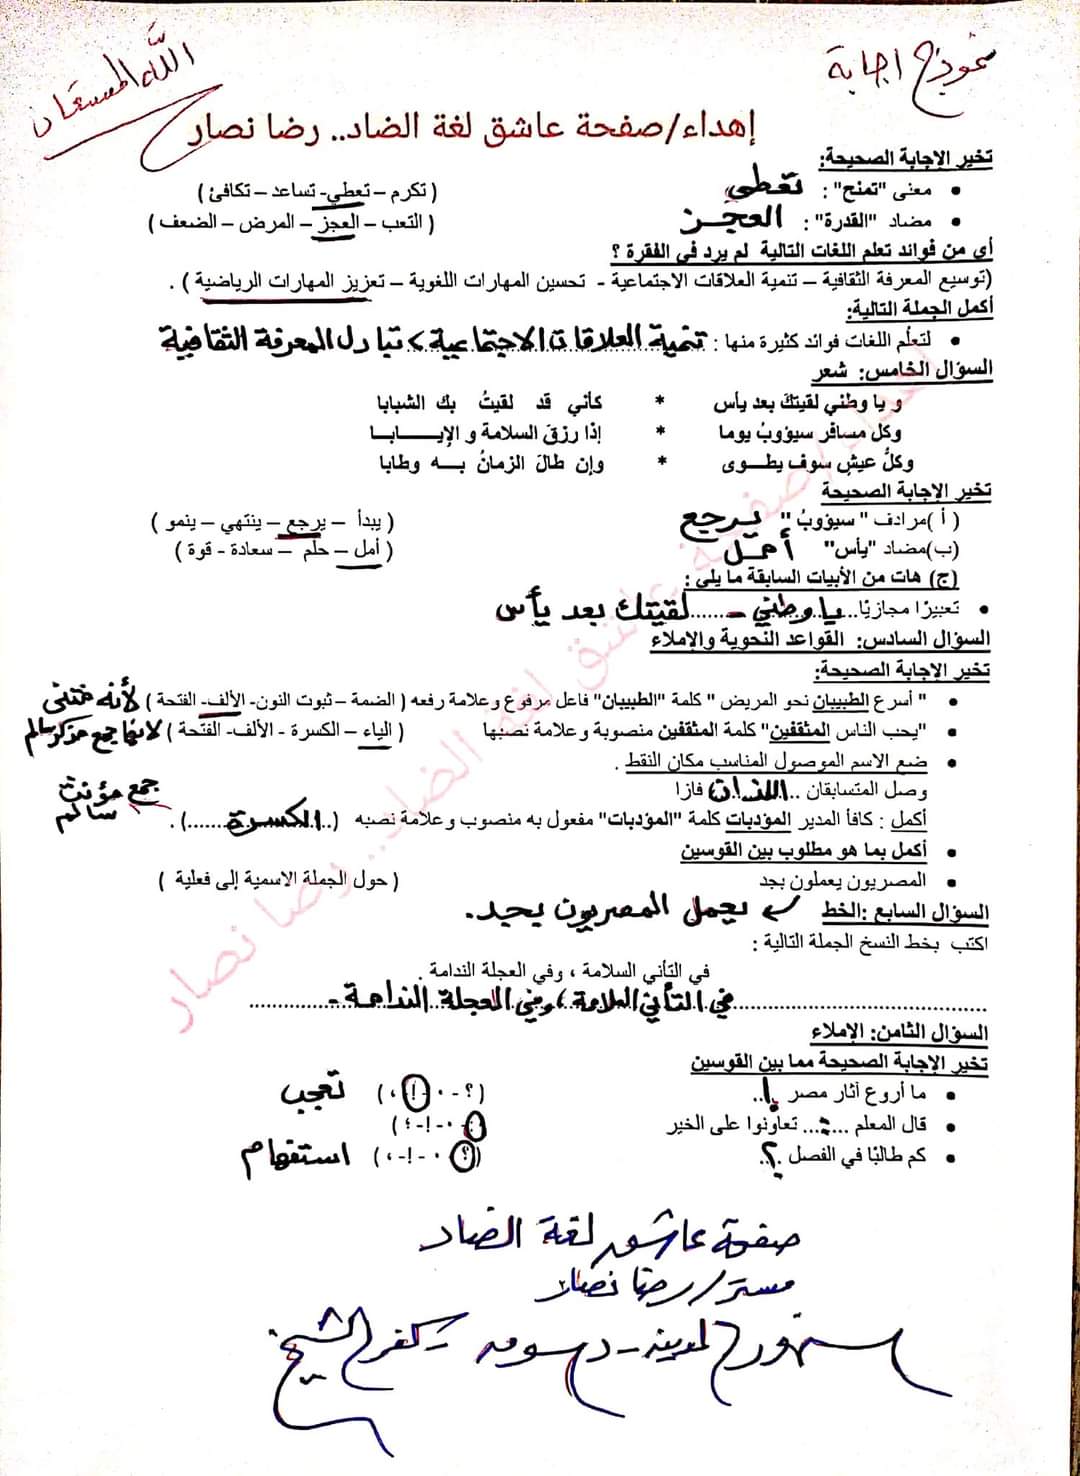 نموذج اجابة
الله المستعان
إهداء/صفحة عاشق لغة الضاد.. رضا نصار
تخير الإجابة الصحيحة:
• معنى "تمنح" : تعطى ( تكرم – تعطي- تساعد – تكافئ )
• مضاد "القدرة" : العجز ( التعب – العجز – المرض – الضعف )
أي من فوائد تعلم اللغات التالية لم يرد في الفقرة ؟
(توسيع المعرفة الثقافية – تنمية العلاقات الاجتماعية - تحسين المهارات اللغوية – تعزيز المهارات الرياضية ) .
أكمل الجملة التالية:
• لتعلُم اللغات فوائد كثيرة منها : تنمية العلاقات الاجتماعية > تبادل المعرفة الثقافية
السؤال الخامس: شعر
و يا وطني لقيتكَ بعد يأس * كأني قد لقيتُ بك الشبابا
وكل مسافر سيؤوبُ يوما * إذا رزقَ السلامة و الإيــــابــا
وكلُّ عيشٍ سوف يطــوى * وإن طالَ الزمانُ بـــه وطابا
تخير الإجابة الصحيحة
( أ )مرادف " سيؤوبُ " يرجع ( يبدأ – يرجع – ينتهي – ينمو )
(ب)مضاد "يأس" أمل ( أمل – حلم – سعادة - قوة )
(ج) هات من الأبيات السابقة ما يلي :
• تعبيرًا مجازيًا.... يا وطني - ...... لقيتك بعد يأس
السؤال السادس: القواعد النحوية والإملاء
تخير الإجابة الصحيحة:
• " أسرع الطبيبان نحو المريض " كلمة "الطبيبان" فاعل مرفوع وعلامة رفعه ( الضمة – ثبوت النون- الألف- الفتحة ) لأنه مثنى
• "يحب الناس المثقفين" كلمة المثقفين منصوبة وعلامة نصبها ( الياء – الكسرة - الألف- الفتحة ) لانها جمع مذكر سالم
• ضع الاسم الموصول المناسب مكان النقط .
وصل المتسابقان ..اللذان فازا
أكمل : كافأ المدير المؤدبات كلمة "المؤدبات" مفعول به منصوب وعلامة نصبه (..الكسرة......) . جمع مؤنث سالم
• أكمل بما هو مطلوب بين القوسين
• المصريون يعملون بجد ( حول الجملة الاسمية إلى فعلية )
السؤال السابع :الخط يعمل المصريون بجد.
اكتب بخط النسخ الجملة التالية :
في التأني السلامة ، وفي العجلة الندامة .
في التأني السلامة ، وفي العجلة الندامة -
السؤال الثامن: الإملاء
تخير الإجابة الصحيحة مما بين القوسين
• ما أروع آثار مصر !.. (؟ - . - ! - ،) تعجب
• قال المعلم ...:... تعاونوا على الخير (: - . - ! - ؟)
• كم طالبًا في الفصل ؟.. (؟ - . - ! - ،) استفهام
صفحة عاشق لغة الضاد
مستر/ رضا نصار
سنهور المدينة - دسوق - كفر الشيخ
إهداء/صفحة عاشق لغة الضاد.. رضا نصار